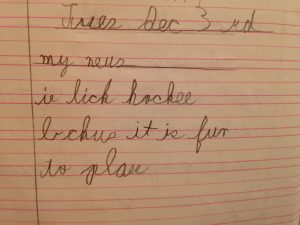 Tues Dec 3rd
my neus
ie lick hockee
bchus it is fun
to plae